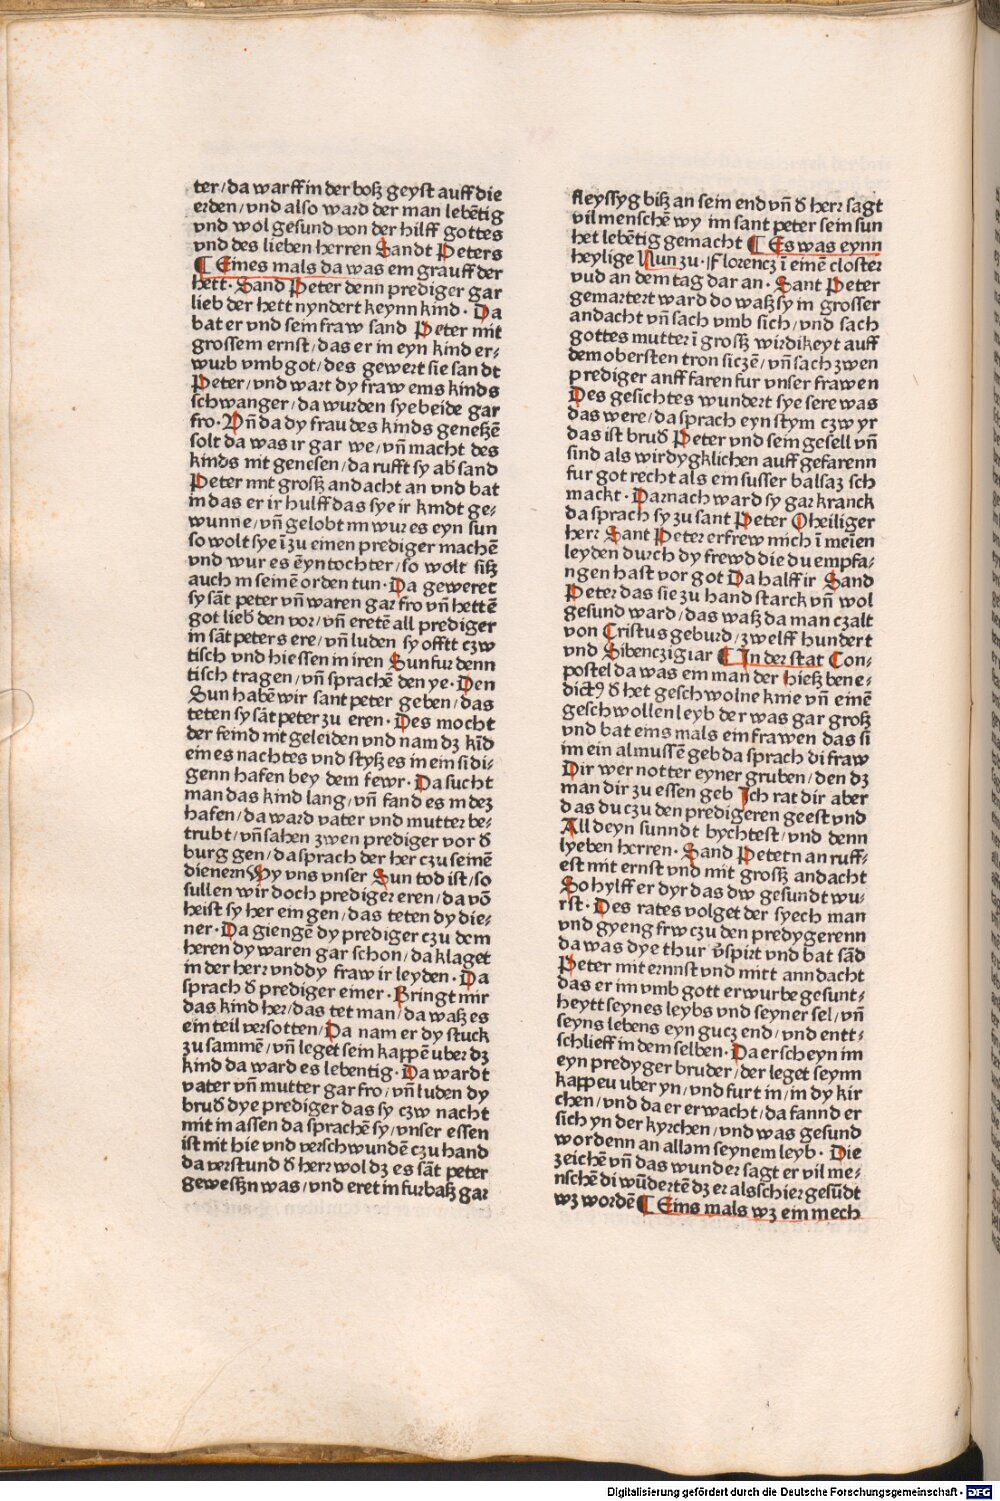 ter/da warff in der boß geyst auff die
erden/vnd also ward der man lebētig
vnd wol gesund von der hilff gottes
vnd des lieben herren Sandt Peters
¶ Eines mals da was ein grauff der
hett· Sand Peter denn prediger gar
lieb der hett nyndert keynn kind· Da
bat er vnd sein fraw sand Peter mit
grossem ernst/das er in eyn kind er⸗
wurb vmb got/des gewert sie sandt
Peter/vnd wart dy fraw eins kinds
schwanger/da wurden sye beide gar
fro· Vn̄ da dy frau des kinds geneßē
solt da was ir gar we/vn̄ macht des
kinds nit genesen/da rufft sy ab sand
Peter mit groß andacht an vnd bat
in das er ir hulff das sye ir kindt ge⸗
wunne/vn̄ gelobt im wur es eyn sun
so wolt sye ī zu einen prediger machē
vnd wur es ēyn tochter/so wolt siß
auch in seinē orden tun· Da geweret
sy sāt peter vn̄ waren gar fro vn̄ hettē
got lieb den vor/vn̄ eretē all prediger
in sāt peters ere/vn̄ luden sy offtt czw
tisch vnd hiessen in iren Sun fur denn
tisch tragen/vn̄ sprachē den ye· Den
Sun habē wir sant peter geben/das
teten sy sāt peter zu eren· Des mocht
der feind nit geleiden vnd nam dz kīd
ein es nachtes vnd styß es in ein sidi⸗
genn hafen bey dem fewr· Da sucht
man das kind lang/vn̄ fand es in dez
hafen/da ward vater vnd mutter be⸗
trubt/vn̄ sahen zwen prediger vor đ
burg gen/da sprach der her czu seinē
dienern Wy vns vnser Sun tod ist/so
sullen wir doch prediger eren/da vō
heist sy her ein gen/das teten dy die⸗
ner· Da giengē dy prediger czu dem
heren dy waren gar schon/da klaget
in der herr vnd dy fraw ir leyden· Da
sprach đ prediger einer· Bringt mir
das kind her/das tet man/da waß es
ein teil versotten/Da nam er dy stuck
zu sammē/vn̄ leget sein kappē uber dz
kind da ward es lebentig· Da wardt
vater vn̄ mutter gar fro/vn̄ luden dy
bruđ dye prediger das sy czw nacht
mit in assen da sprachē sy/vnser essen
ist nit hie vnd verschwundē czu hand
da verstund đ herr wol dz es sāt peter
geweßn was/vnd eret in furbaß gar
fleyssyg biß an sein end vn̄ đ herr sagt
vil menschē wy im sant peter sein sun
het lebētig gemacht ¶ Es was eynn
heylige Nun zu· Florencz ī einē closter
vud an dem tag dar an· Sant Peter
gemartert ward do waß sy in grosser
andacht vn̄ sach vmb sich/vnd sach
gottes mutter ī groß wirdikeyt auff
dem obersten tron siczē/vn̄ sach zwen
prediger anff faren fur vnser frawen
Des gesichtes wundert sye sere was
das were/da sprach eyn stym czw yr
das ist bruđ Peter vnd sein gesell vn̄
sind als wirdygklichen auff gefarenn
fur got recht als ein susser balsaz sch
mackt· Darnach ward sy gar kranck
da sprach sy zu sant Peter O heiliger
herr Sant Peter erfrew mich ī meīen
leyden durch dy frewd die du empfa⸗
ngen hast vor got Da half ir Sand
Peter das sie zu hand starck vn̄ wol
gesund ward/das waß da man czalt
von Cristus geburd/zwelff hundert
vnd Sibenczig iar ¶ In der stat Con⸗
postel da was ein man der hieß bene⸗
dictꝰ đ het geschwolne knie vn̄ einē
geschwollen leyb der was gar groß
vnd bat eins mals ein frawen das si
im ein almussē geb da sprach di fraw
Dir wer notter eyner gruben/den dz
man dir zu essen geb Ich rat dir aber
das du czu den predigeren geest vnd
All deyn sunndt bychtest/vnd denn
lyeben herren· Sand Petetn an ruff⸗
est mit ernst vnd mit groß andacht
So hylff er dyr das dw gesundt wu⸗
rst· Des rates volget der syech man
vnd gyeng frw czu den predygerenn
da was dye thur v̄spirt vnd bat sād
Peter mit ernnst vnd mitt anndacht
das er im vmb gott erwurbe gesunt⸗
heytt seynes leybs vnd seyner sel/vn̄
seyns lebens eyn gucz end/vnd entt⸗
schlieff in dem selben· Da erscheyn im
eyn predyger bruder/der leget seynn
kappeu uber yn/vnd furt in/in dy kir
chen/vnd da er erwacht/da fannd er
sich yn der kyrchen/vnd was gesund
wordenn an allem seynem leyb· Die
zeichē vn̄ das wunder sagt er vil me⸗
nschē di wūdertē dz er als schier gesūdt
wz wordē ¶ Eins mals wz ein mech
Digitalisierung gefördert durch die Deutsche Forschungsgemeinschaft · DFG